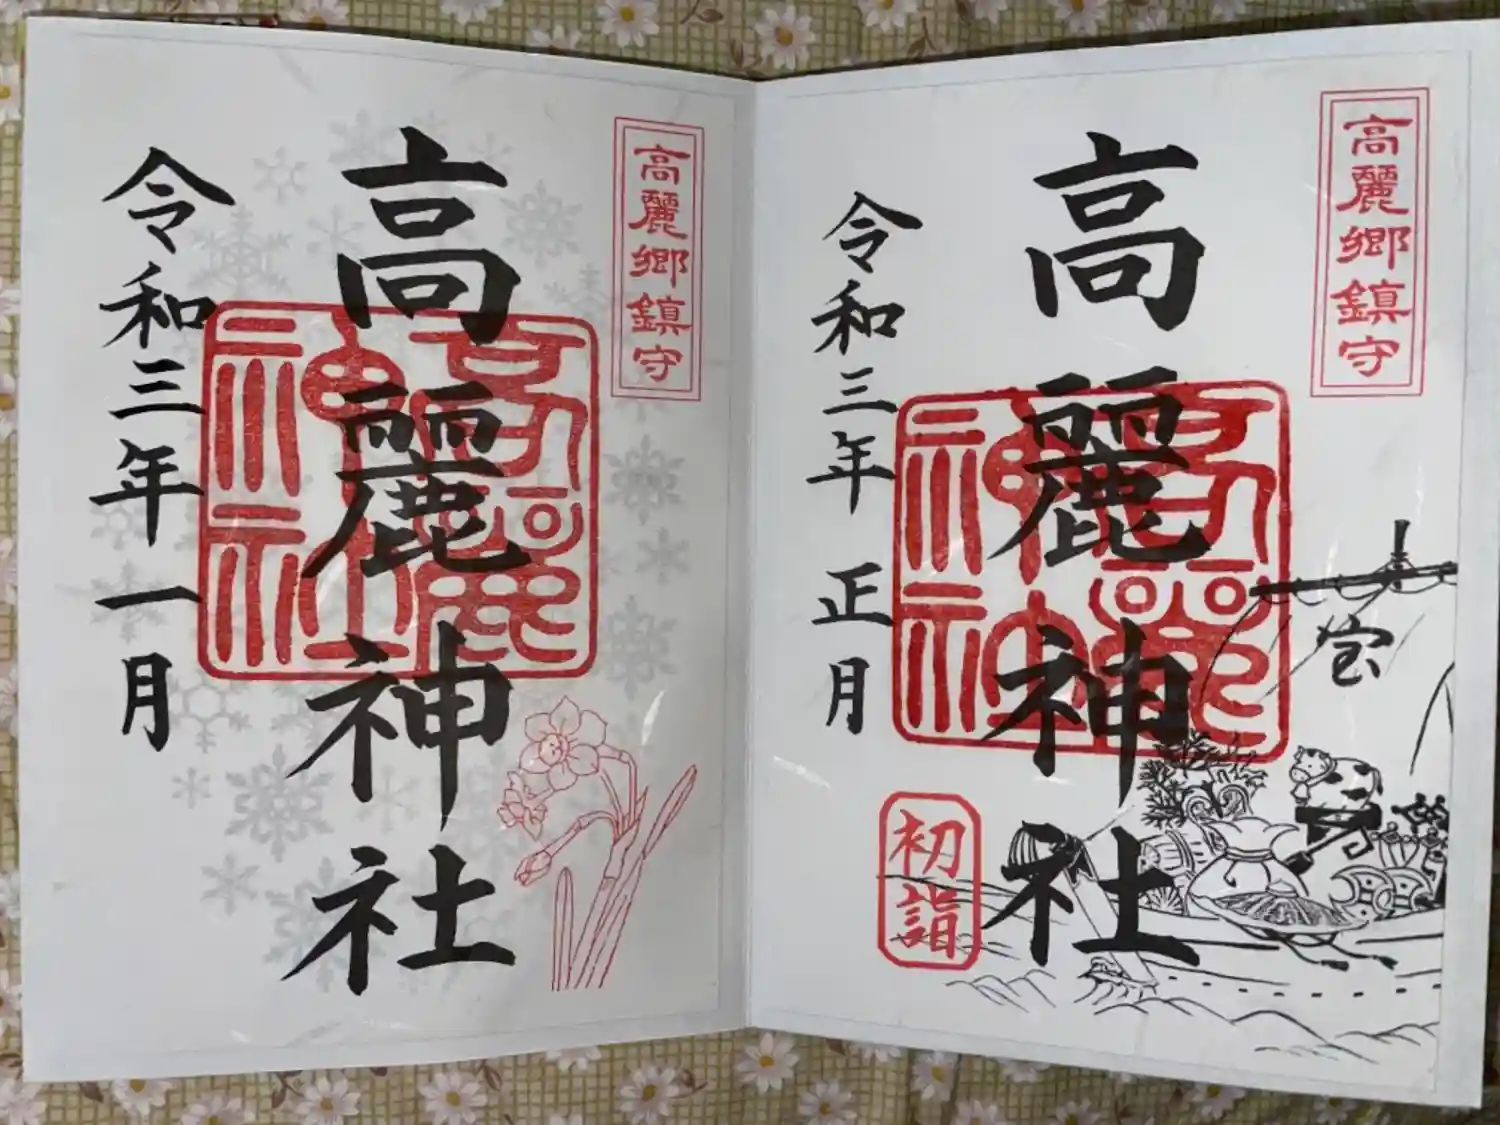 高麗郷鎮守
高麗神社
令和三年一月
高麗神社
高麗郷鎮守
高麗神社
令和三年正月
初詣
宝